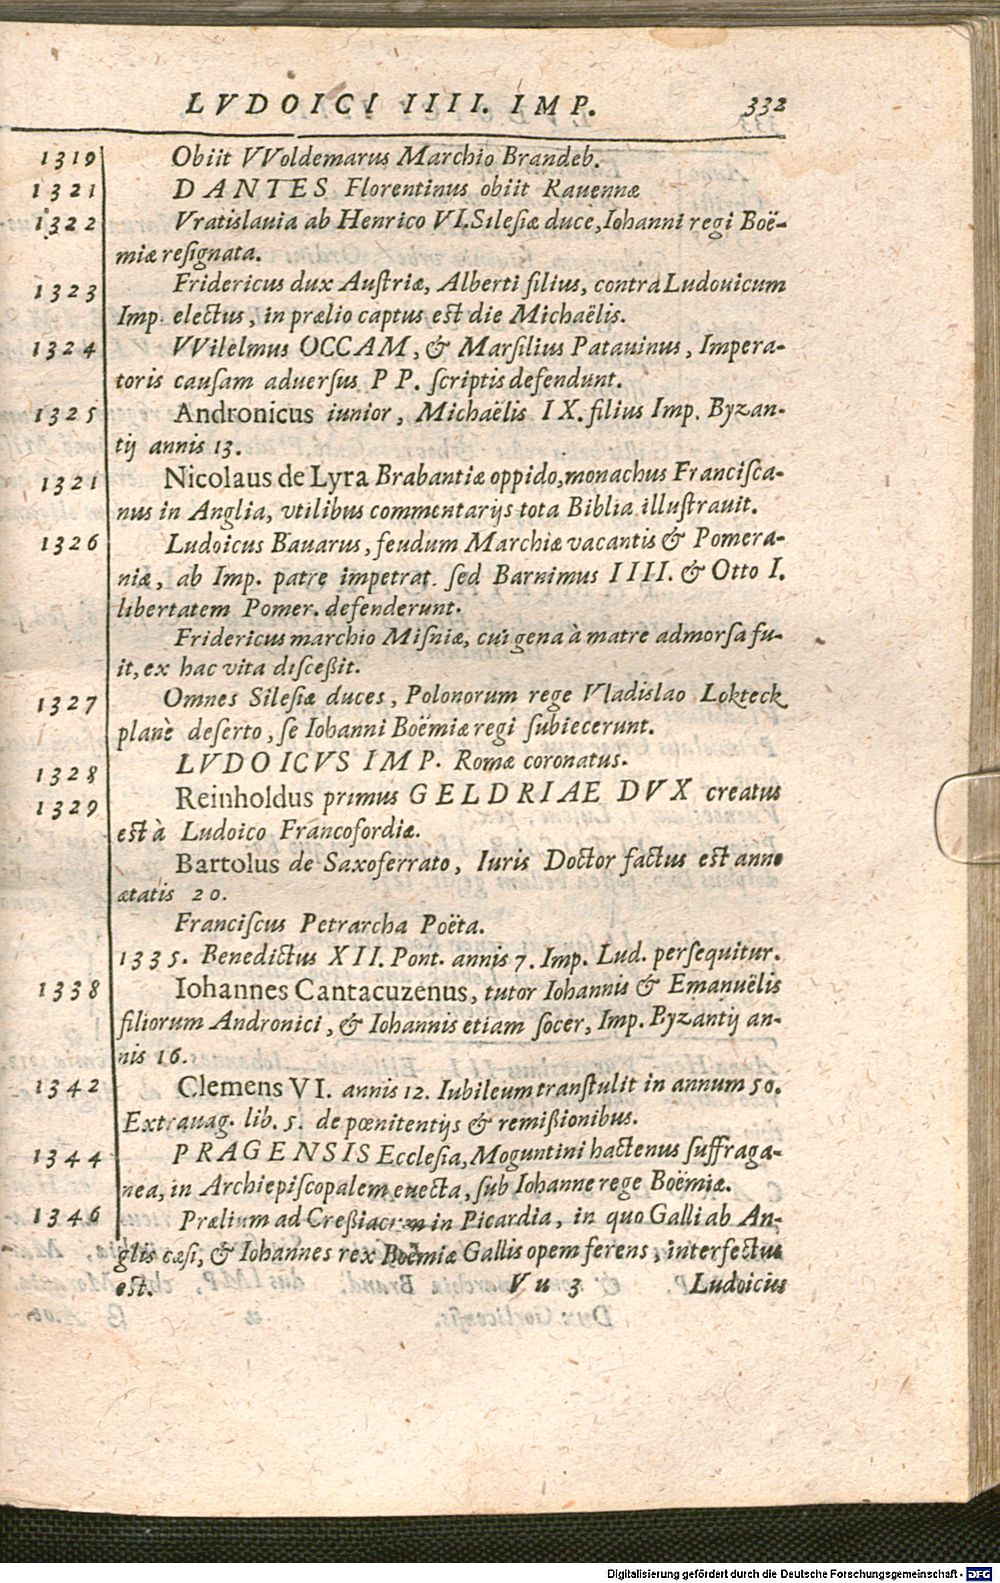 LVDOICI IIII. IMP. 332
1319 Obiit VVoldemarus Marchio Brandeb.
1321 DANTES Florentinus obiit Rauennæ
1322 Vratislauia ab Henrico VI. Silesiæ duce, Iohanni regi Boë-
miæ resignata.
1323 Fridericus dux Austriæ, Alberti filius, contra Ludouicum
Imp. electus, in prælio captus est die Michaëlis.
1324 VVilelmus OCCAM, & Marsilius Patauinus, Impera-
toris causam aduersus PP. scriptis defendunt.
1325 Andronicus iunior, Michaëlis IX. filius Imp. Byzan-
tij annis 13.
1321 Nicolaus de Lyra Brabantiæ oppido, monachus Francisca-
nus in Anglia, vtilibus commentarijs tota Biblia illustrauit.
1326 Ludoicus Bauarus, feudum Marchiæ vacantis & Pomera-
niæ, ab Imp. patre impetrat. sed Barnimus IIII. & Otto I.
libertatem Pomer. defenderunt.
Fridericus marchio Misniæ, cui gena à matre admorsa fu-
it, ex hac vita disceßit.
1327 Omnes Silesiæ duces, Polonorum rege Vladislao Lokteck
planè deserto, se Iohanni Boëmiæ regi subiecerunt.
1328 LVDOICVS IMP. Romæ coronatus.
1329 Reinholdus primus GELDRIAE DVX creatus
est à Ludoico Francofordiæ.
Bartolus de Saxoferrato, Iuris Doctor factus est anno
ætatis 20.
Franciscus Petrarcha Poëta.
1335. Benedictus XII. Pont. annis 7. Imp. Lud. persequitur.
1338 Iohannes Cantacuzenus, tutor Iohannis & Emanuëlis
filiorum Andronici, & Iohannis etiam socer, Imp. Byzantij an-
nis 16.
1342 Clemens VI. annis 12. Iubileum transtulit in annum 50.
Extrauag. lib. 5. de pœnitentijs & remißionibus.
1344 PRAGENSIS Ecclesia, Moguntini hactenus suffraga-
nea, in Archiepiscopalem euecta, sub Iohanne rege Boëmiæ.
1346 Prælium ad Creßiacum in Picardia, in quo Galli ab An-
glis cæsi, & Iohannes rex Boëmiæ Gallis opem ferens, interfectus
est. Vu 3 Ludoicius
Digitalisierung gefördert durch die Deutsche Forschungsgemeinschaft - DFG